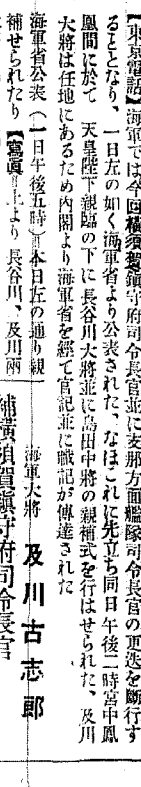 【東京電話】海軍では今回横須賀鎮守府司令長官並に支那方面艦隊司令長官の更迭を断行す
るととなり、一日左の如く海軍省より公表された、なほこれに先立ち同日午後二時宮中鳳
凰間に於て 天皇陛下親臨の下に長谷川大將並に島田中將の親補式を行はせられた、及川
大將は任地にあるため内閣より海軍省を經て官記並に職記が傳達された
海軍省公表(一日午後五時)本日左の通り親
補せられたり【寫眞】上より長谷川、及川兩
海軍大將 及川古志郎
補横須賀鎮守府司令長官